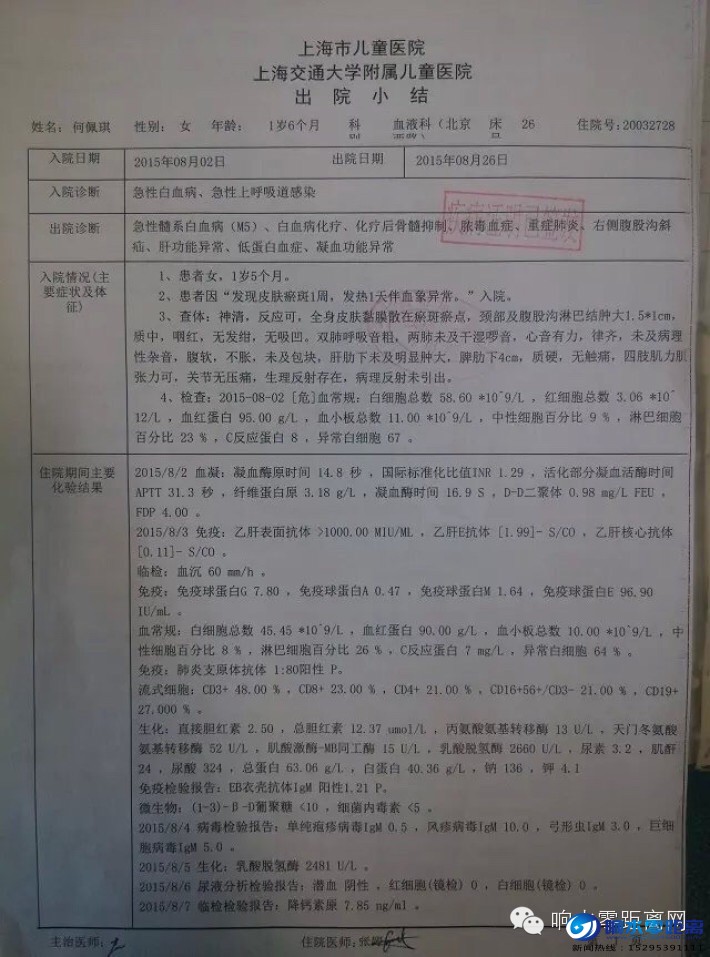 上海市儿童医院
上海交通大学附属儿童医院
出 院 小 结
姓名: 何佩琪 性别: 女 年龄: 1岁6个月 科 血液科（北京 床 26 住院号:20032728
入院日期 2015年08月02日 出院日期 2015年08月26日
入院诊断 急性白血病、急性上呼吸道感染
出院诊断 急性髓系白血病（M5）、白血病化疗、化疗后骨髓抑制、脓毒血症、重症肺炎、右侧腹股沟斜
疝、肝功能异常、低蛋白血症、凝血功能异常
入院情况(主
要症状及体
征)
1、患者女，1岁5个月。
2、患者因“发现皮肤瘀斑1周，发热1天伴血象异常。”入院。
3、查体: 神清，反应可，全身皮肤黏膜散在瘀斑瘀点，颈部及腹股沟淋巴结肿大1.5*1cm，
质中，咽红，无发绀，无吸凹。双肺呼吸音粗，两肺未及干湿啰音，心音有力，律齐，未及病理
性杂音，腹软，不胀，未及包块，肝肋下未及明显肿大，脾肋下4cm，质硬，无触痛，四肢肌力肌
张力可，关节无压痛，生理反射存在，病理反射未引出。
4、检查: 2015-08-02 [危]血常规: 白细胞总数 58.60 *10^9/L ，红细胞总数 3.06 *10^
12/L ，血红蛋白 95.00 g/L ，血小板总数 11.00 *10^9/L ，中性细胞百分比 9 % ，淋巴细胞
百分比 23 % ，C反应蛋白 8 ，异常白细胞 67 。
住院期间主要
化验结果
2015/8/2 血凝: 凝血酶原时间 14.8 秒 ，国际标准化比值INR 1.29 ，活化部分凝血活酶时间
APTT 31.3 秒 ，纤维蛋白原 3.18 g/L ，凝血酶时间 16.9 S ，D-D二聚体 0.98 mg/L FEU ，
FDP 4.00 。
2015/8/3 免疫: 乙肝表面抗体 >1000.00 MIU/ML ，乙肝E抗体 [1.99]- S/CO ，乙肝核心抗体
[0.11]- S/CO 。
临检: 血沉 60 mm/h 。
免疫: 免疫球蛋白G 7.80 ，免疫球蛋白A 0.47 ，免疫球蛋白M 1.64 ，免疫球蛋白E 96.90
IU/mL 。
血常规: 白细胞总数 45.45 *10^9/L ，血红蛋白 90.00 g/L ，血小板总数 10.00 *10^9/L ，中
性细胞百分比 8 % ，淋巴细胞百分比 26 % ，C反应蛋白 7 mg/L ，异常白细胞 64 % 。
免疫: 肺炎支原体抗体 1:80阳性 P。
流式细胞: CD3+ 48.00 % ，CD8+ 23.00 % ，CD4+ 21.00 % ，CD16+56+/CD3- 21.00 % ，CD19+
27.000 % 。
生化: 直接胆红素 2.50 ，总胆红素 12.37 umol/L ，丙氨酸氨基转移酶 13 U/L ，天门冬氨酸
氨基转移酶 52 U/L ，肌酸激酶-MB同工酶 15 U/L ，乳酸脱氢酶 2660 U/L ，尿素 3.2 ，肌酐
24 ，尿酸 324 ，总蛋白 63.06 g/L ，白蛋白 40.36 g/L ，钠 136 ，钾 4.1
免疫检验报告: EB衣壳抗体IgM 阳性1.21 P。
微生物: (1-3)-β-D葡聚糖 <10 ，细菌内毒素 <5 。
2015/8/4 病毒检验报告: 单纯疱疹病毒IgM 0.5 ，风疹病毒IgM 10.0 ，弓形虫IgM 3.0 ，巨细
胞病毒IgM 5.0 。
2015/8/5 生化: 乳酸脱氢酶 2481 U/L 。
2015/8/6 尿液分析检验报告: 潜血 阴性 ，红细胞(镜检) 0 ，白细胞(镜检) 0 。
2015/8/7 临检检验报告: 降钙素原 7.85 ng/ml 。
主治医师: 住院医师:
响水零距离网
新闻热线: